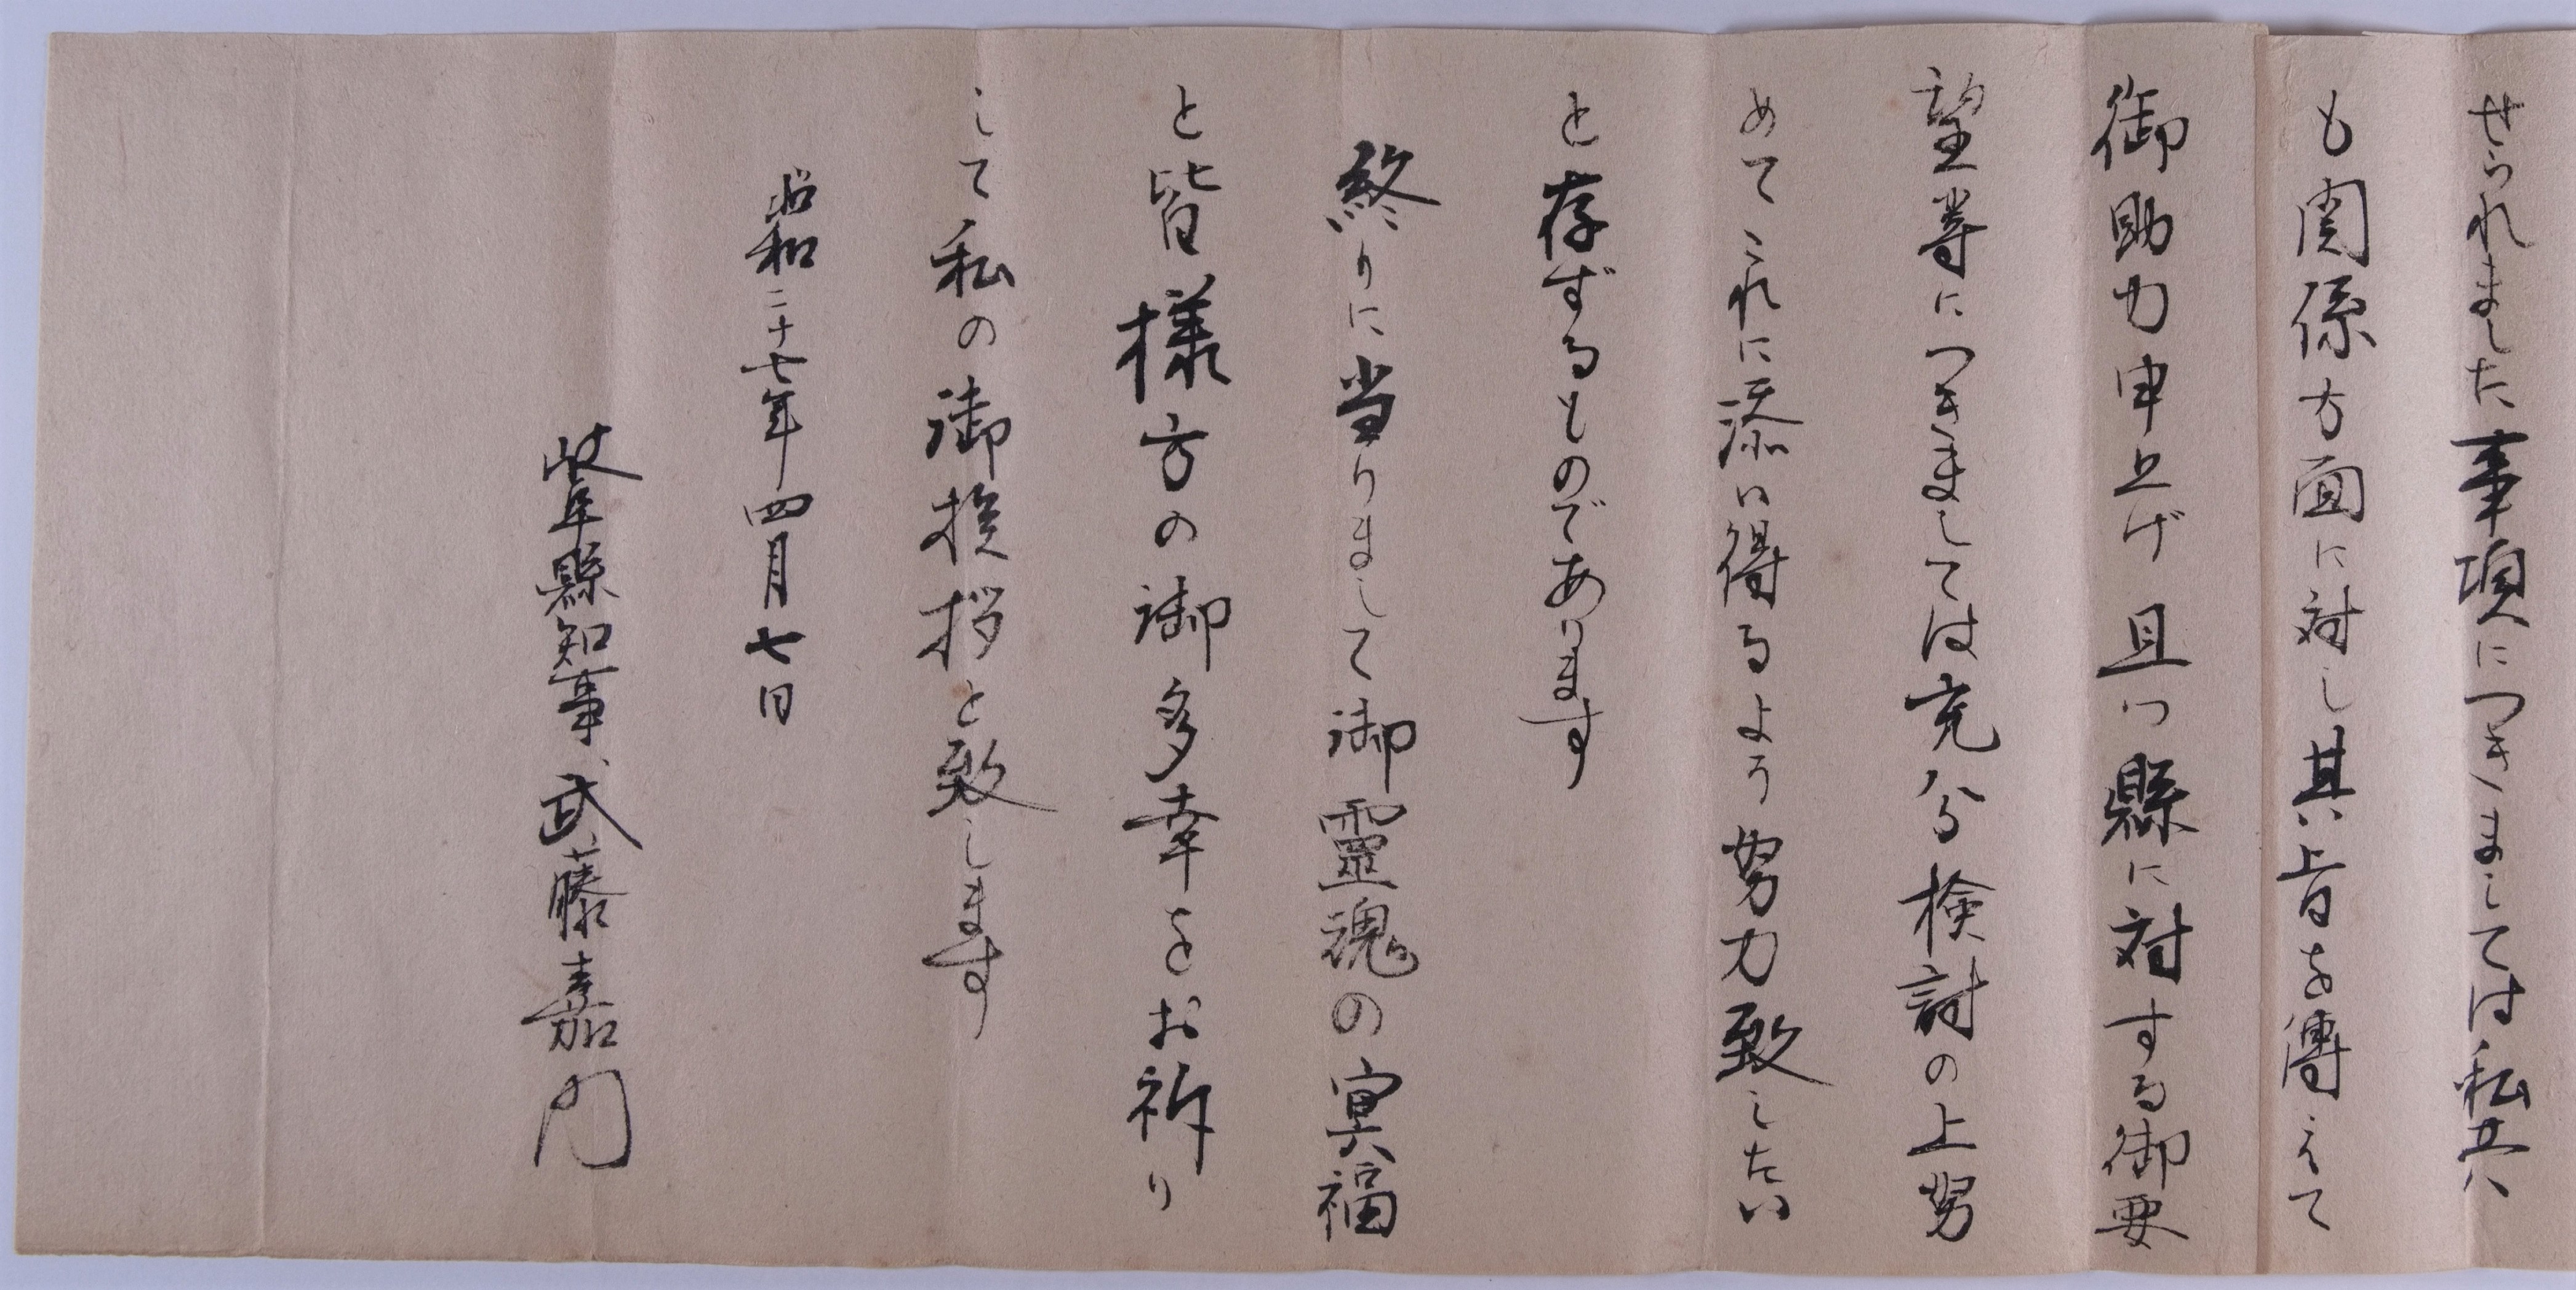 せられました事項につきましては私共
も関係方面に対し其旨を傳えて
御助力申上げ且つ縣に対する御要
望等につきましては充分検討の上努
めてこれに添い得るよう努力致したい
と存ずるものであります
終りに当りまして御霊魂の冥福
と皆様方の御多幸をお祈り
して私の御挨拶と致します
昭和二十七年四月七日
岐阜縣知事、武藤嘉門